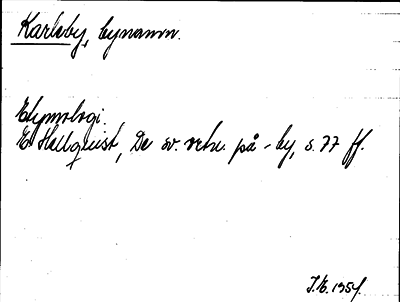 Karleby, bynamn.
Etymologi.
E Hellquist, De sv. ortn. på -by, s. 77 ff.
J.E. 1954.